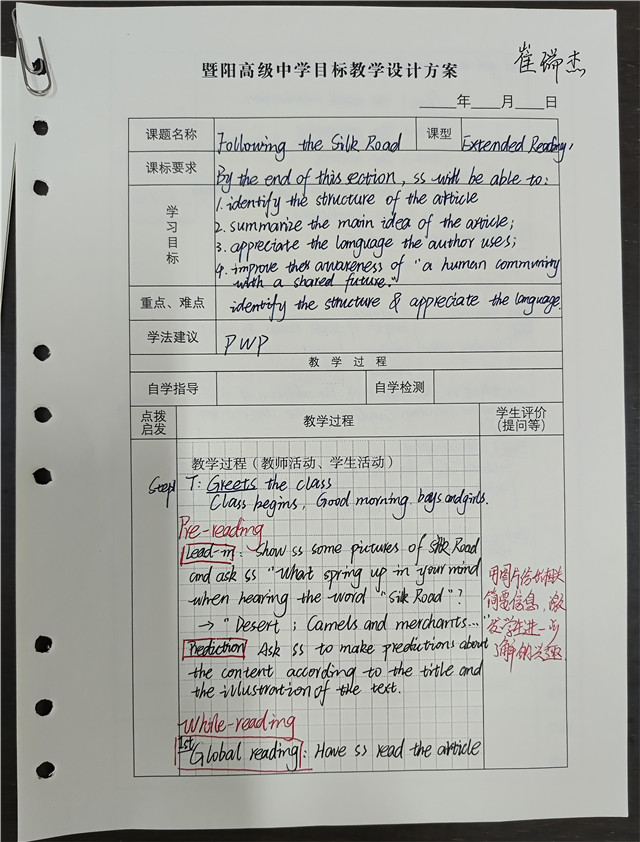 暨阳高级中学目标教学设计方案
崔瑞杰
____年____月____日
课题名称 Following the Silk Road 课型 Extended Reading,
课标要求
By the end of this section, ss will be able to:
学习目标
1. identify the structure of the article
2. summarize the main idea of the article;
3. appreciate the language the author uses;
4. improve their awareness of "a human community
with a shared future."
重点、难点 identify the structure & appreciate the language.
学法建议 PWP
教 学 过 程
自学指导 自学检测
点拨启发 教学过程 学生评价(提问等)
教学过程(教师活动、学生活动)
Step1 T: Greets the class
Class begins, Good morning. boys and girls.
Pre-reading
Lead-in: Show ss some pictures of Silk Road
and ask ss "What spring up in your mind
when hearing the word "Silk Road"?
→ "Desert; Camels and merchants..."
Prediction Ask ss to make predictions about
the content according to the title and
the illustration of the text.
用图片给出相关
简要信息,激
发学生进一步
了解的兴趣.
While-reading
1st Global reading: Have ss read the article